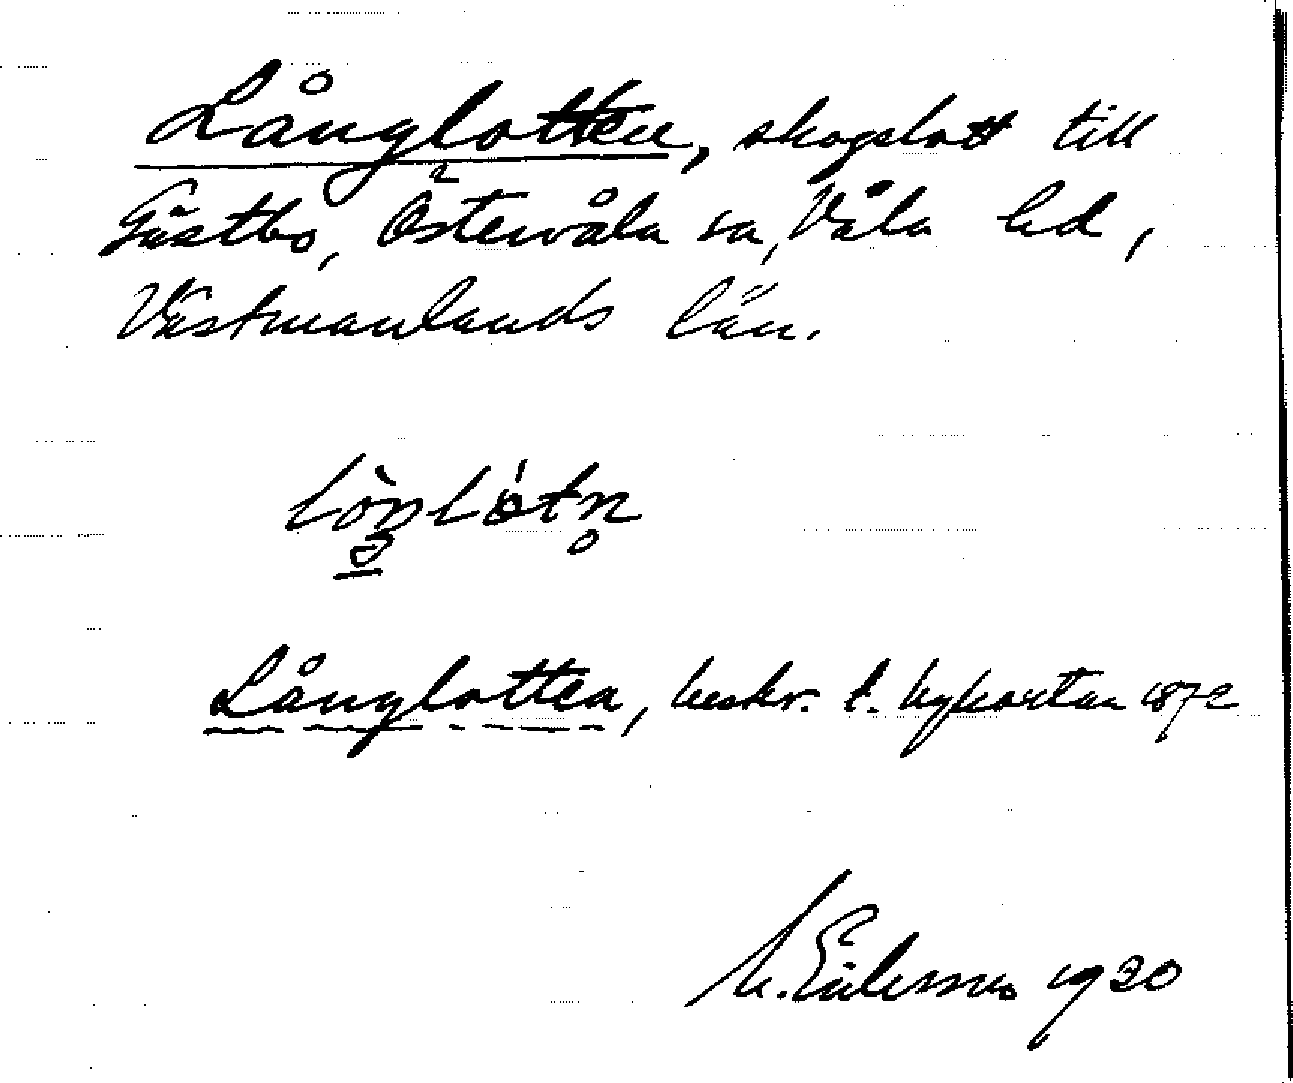 Långlotten, skogslott till
Gästbo, Östervåla sn, Våla hd,
Västmanlands län.
Långlotten, beskr. t. hypkartan 1872
1920